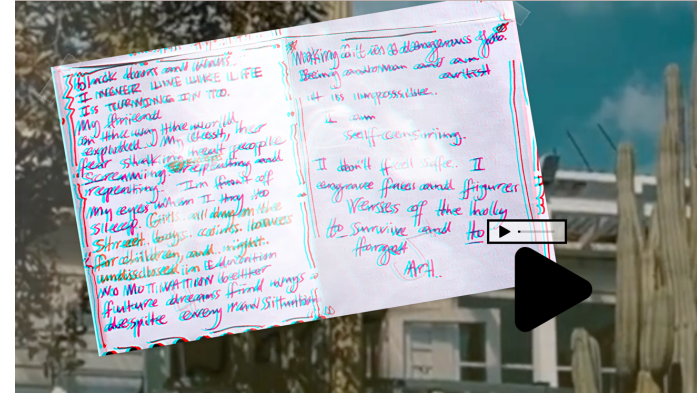 black dawns and
I NEVER LIVE LIKE LIFE
Is TURNING IN TO.
My friend
on the way the world
exploded. My
fear
screaming repeating and
repeating. I'm front of
My eyes when I try to
sleep. Girls all down on the
street, boys, coins, losses
for children and night.
undisclosed in Education
NO MOTIVATION better
future dreams find ways
despite every
Making art is a dangerous job.
Being a woman and am
it is impossible..
I am
self-censoring.
I don't feel safe. I
engrave lines and figures
Verses of the holly
to survive and to
forget
Art..